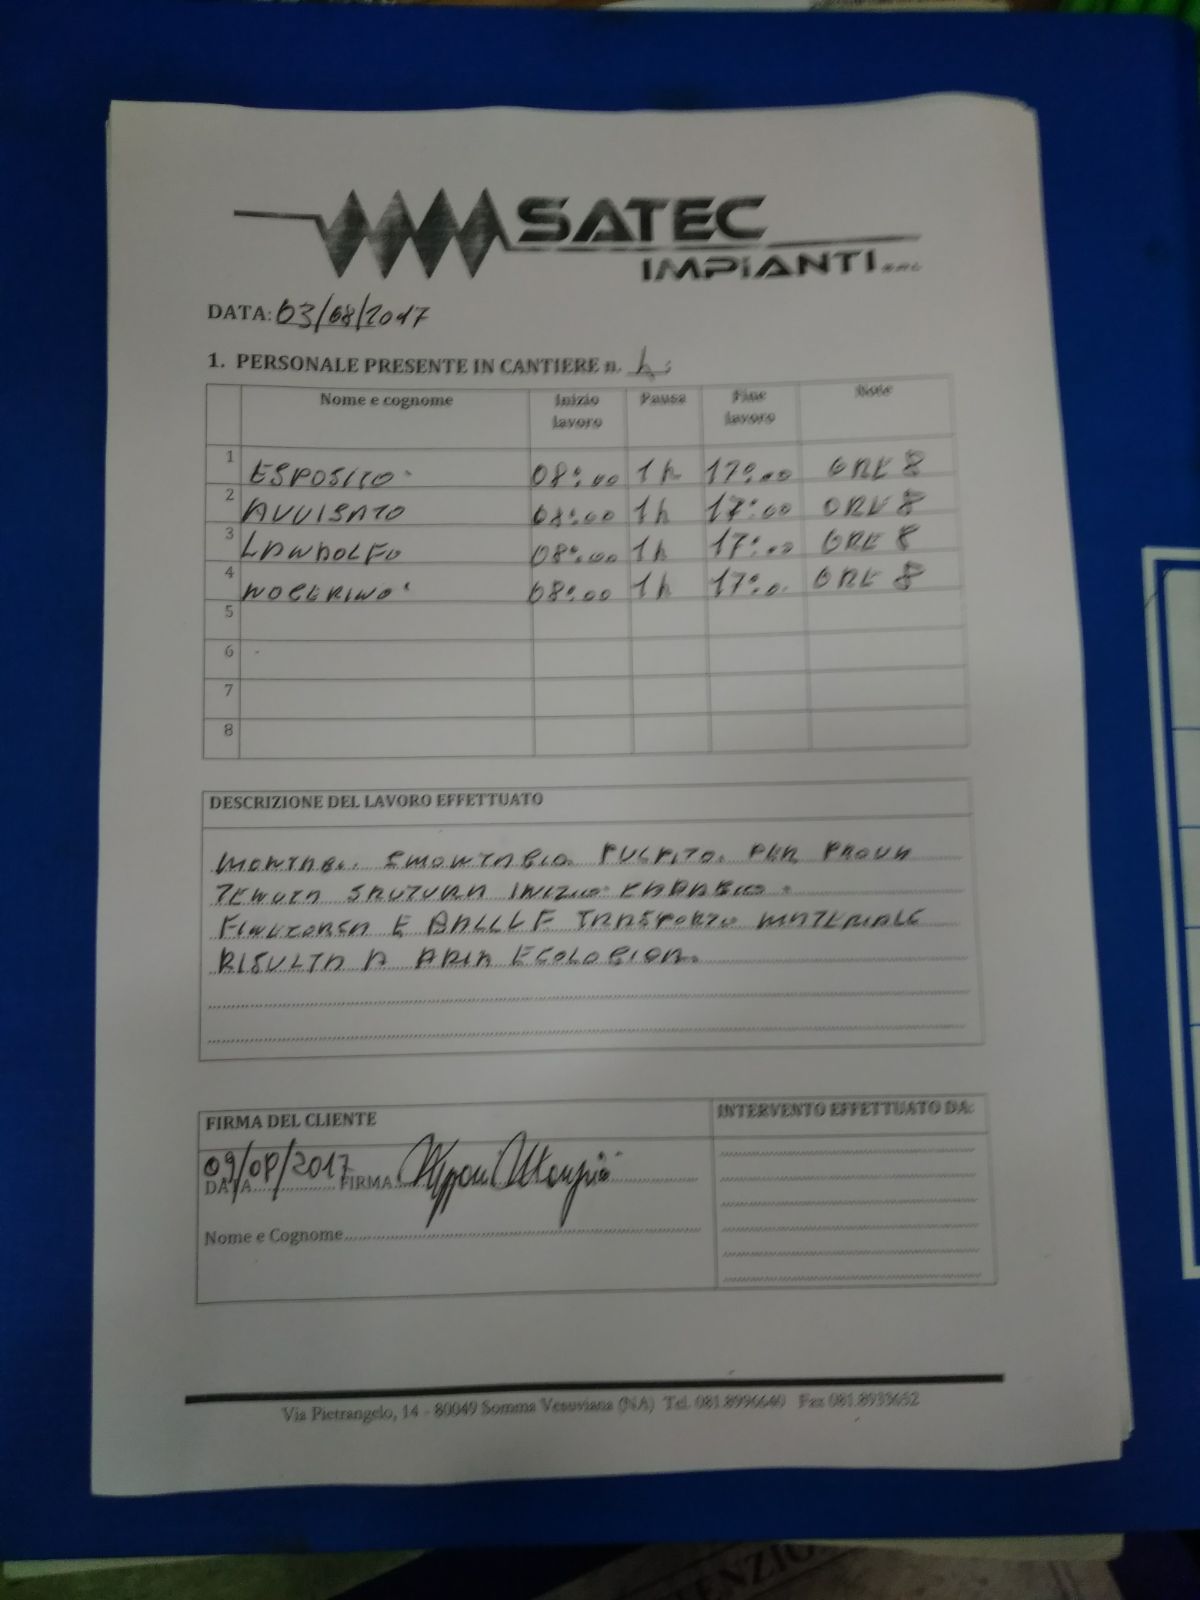 SATEC
IMPIANTI S.R.L.
DATA: 03/08/2017
1. PERSONALE PRESENTE IN CANTIERE n. 4
Nome e cognome Inizio lavoro Pausa Fine lavoro Note
1 ESPOSITO 08:00 1h 17:00 ORE 8
2 AVVISATO 08:00 1h 17:00 ORE 8
3 LANDOLFO 08:00 1h 17:00 ORE 8
4 NOCERINO 08:00 1h 17:0. ORE 8
5
6
7
8
DESCRIZIONE DEL LAVORO EFFETTUATO
SMONTAGGIO PULPITO PER PROVA
TENUTA INIZIO
E TRASPORTO MATERIALE
RISULTA A ECOLOGICA.
FIRMA DEL CLIENTE INTERVENTO EFFETTUATO DA:
09/08/2017
DATA FIRMA
Nome e Cognome
Via Pietrangelo, 14 - 80049 Somma Vesuviana (NA) Tel. 081.8996640 Fax 081.8933652
ENZIO